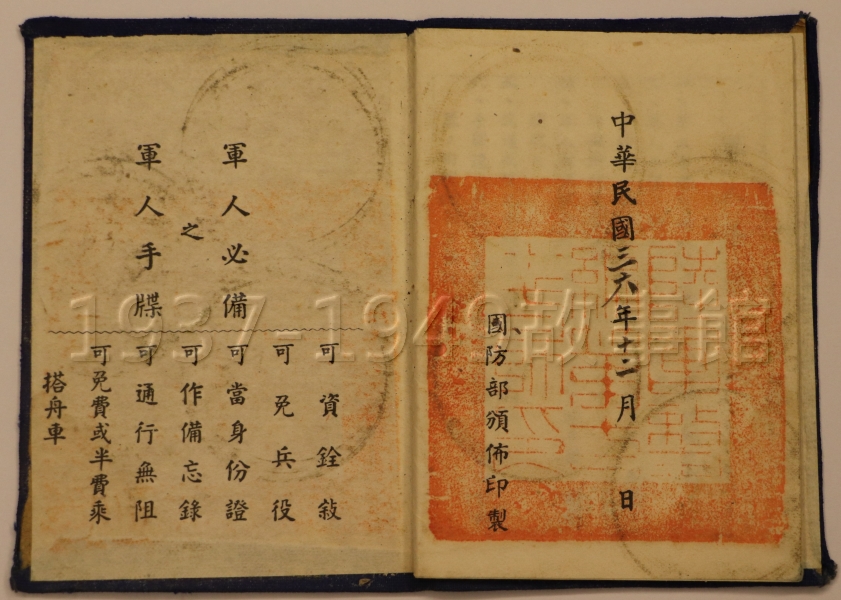 中華民國三六年十二月 日
國防部頒佈印製
軍人必備
之
軍人手牒
可資銓敍
可免兵役
可當身份證
可作備忘錄
可通行無阻
可免費或半費乘
搭舟車
1937-1949故事館